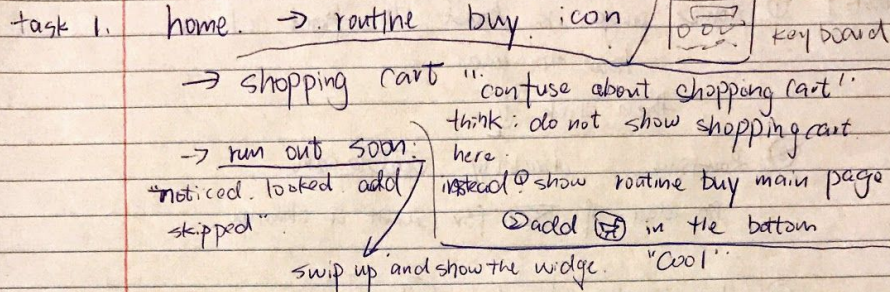 task 1. home. → routine buy icon
keyboard
→ shopping cart "confuse about shopping cart".
think: do not show shopping cart
here.
→ run out soon:
"noticed. looked. add
skipped"
instead ① show routine buy main page
② add in the bottom
swip up and show the widge. "Cool".